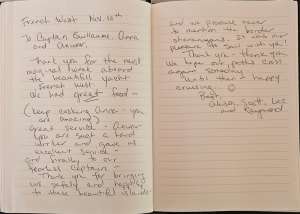 French West Nov. 10th
To Captain Guillaume, Anna
and
Thank you for the most
magical week aboard
the beautiful yacht
French West
We had great food -
(Keep cooking Anna - you
are amazing)
Great service -
You are such a hard
worker and gave us
excellent service -
and finally to our
fearless Captain -
Thank you for bringing
us safely and happily
to these beautiful islands
and we promise never
to mention the border
shenanigans. It was our
pleasure to sail with you!
Thank you - thank you
We hope our paths cross
again someday
Until then - happy
cruising ☺
Best,
Scott, Les
and Raymond